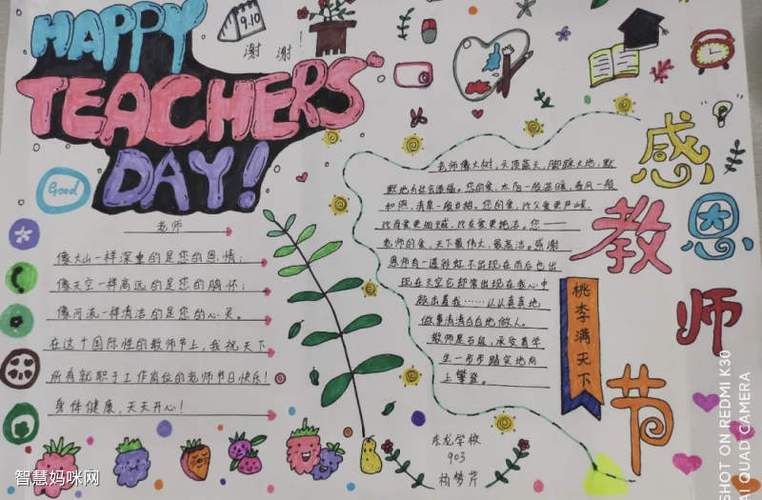 HAPPY
TEACHERS'
DAY!
9.10
谢 谢!
Good
老师
像大山一样深重的是您的恩情;
像天空一样高远的是您的胸怀;
像河流一样清洁的是您的心灵。
在这个国际性的教师节上,我祝天下
所有就职于工作岗位的老师节日快乐!
身体健康,天天开心!
老师像大树,头顶蓝天,脚踩大地,默
您的爱,太阳一般温暖,春风一般
和煦,清泉一般甘甜。您的爱,比父爱更严峻,
比母爱更细腻,比友爱更纯洁。您——
老师的爱,天下最伟大,最高洁。感谢
恩师有一道彩虹不出现在雨后也出
现在天空它却常出现在我心中
鞭击着我……认认真真地
做事清清白白地做人。
教师是石级,承受着学
生一步步踏实地向
上攀登。
桃李满天下
感
恩
教
师
节
东龙学校
903
智慧妈咪网
SHOT ON REDMI K30
AI QUAD CAMERA